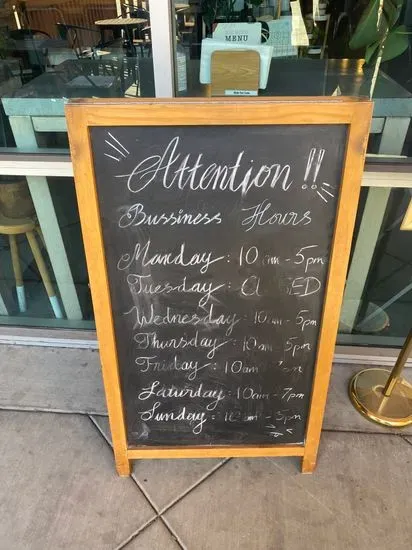 MENU
Attention!!
Bussiness Hours
Manday: 10 am - 5pm
Tuesday: CLOSED
Wednesday: 10am - 5pm
Thursday: 10am - 5pm
Friday: 10am
Saturday: 10am - 7pm
Sunday: 10am - 5pm